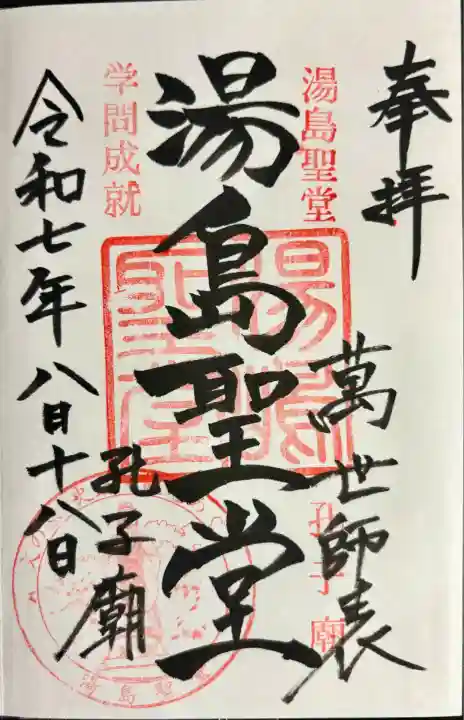 奉拝
萬世師表
湯島聖堂
孔子廟
湯島聖堂
湯島聖堂
学問成就
孔子廟
令和七年八月十八日
湯島聖堂